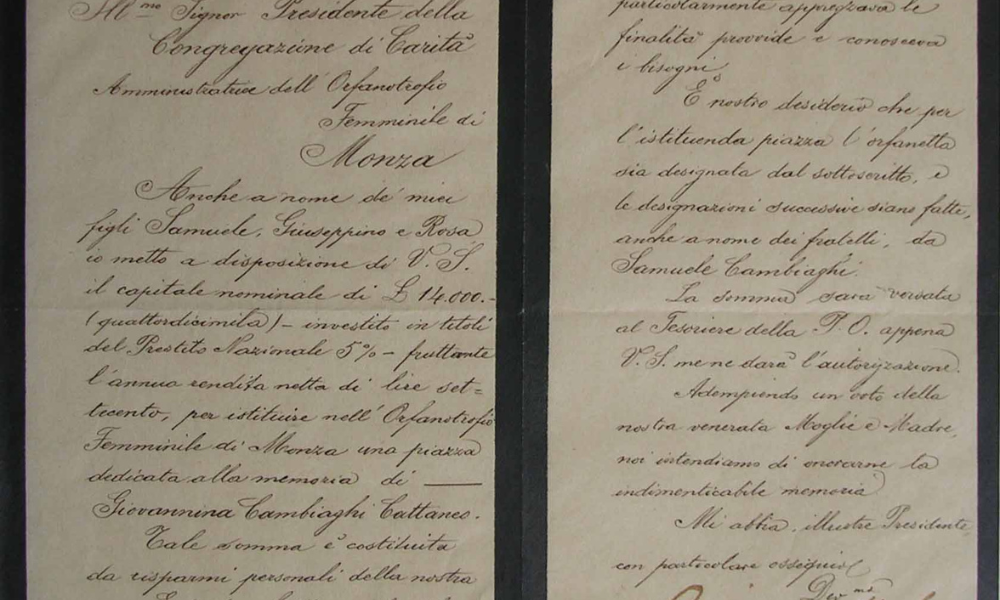 Ill.mo Signor Presidente della
Congregazione di Carità
Amministratrice dell'Orfanotrofio
Femminile di
Monza
Anche a nome de' miei
figli Samuele, Giuseppino e Rosa
io metto a disposizione di V. S.
il capitale nominale di £ 14.000.-
(quattordicimila) - investito in titoli
del Prestito Nazionale 5% - fruttante
l'annua rendita netta di lire set=
tecento, per istituire nell'Orfanotrofio
Femminile di Monza una piazza
dedicata alla memoria di ——
Giovannina Cambiaghi Cattaneo.
Tale somma è costituita
da risparmi personali della nostra
particolarmente apprezzava le
finalità provvide e conosceva
i bisogni.
È nostro desiderio che per
l'istituenda piazza l'orfanella
sia designata dal sottoscritto, e
le designazioni successive siano fatte,
anche a nome dei fratelli, da
Samuele Cambiaghi.
La somma sarà versata
al Tesoriere della P. O. appena
V. S. me ne darà l'autorizzazione.
Adempiendo un voto della
nostra venerata Moglie e Madre,
noi intendiamo di onorarne la
indimenticabile memoria
Mi abbia, illustre Presidente,
con particolare ossequio
Dev.mo